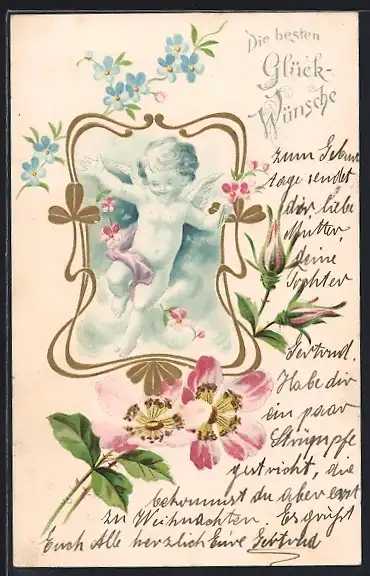 Die besten
Glück-
Wünsche
zum Geburts
tage sendet
dir, liebe
Mutter,
deine
Tochter
Gertrud.
Habe dir
ein paar
Strümpfe
gestrickt, die
bekommst du aber erst
zu Weihnachten. Es grüßt
Euch Alle herzlich Eure Gertrud